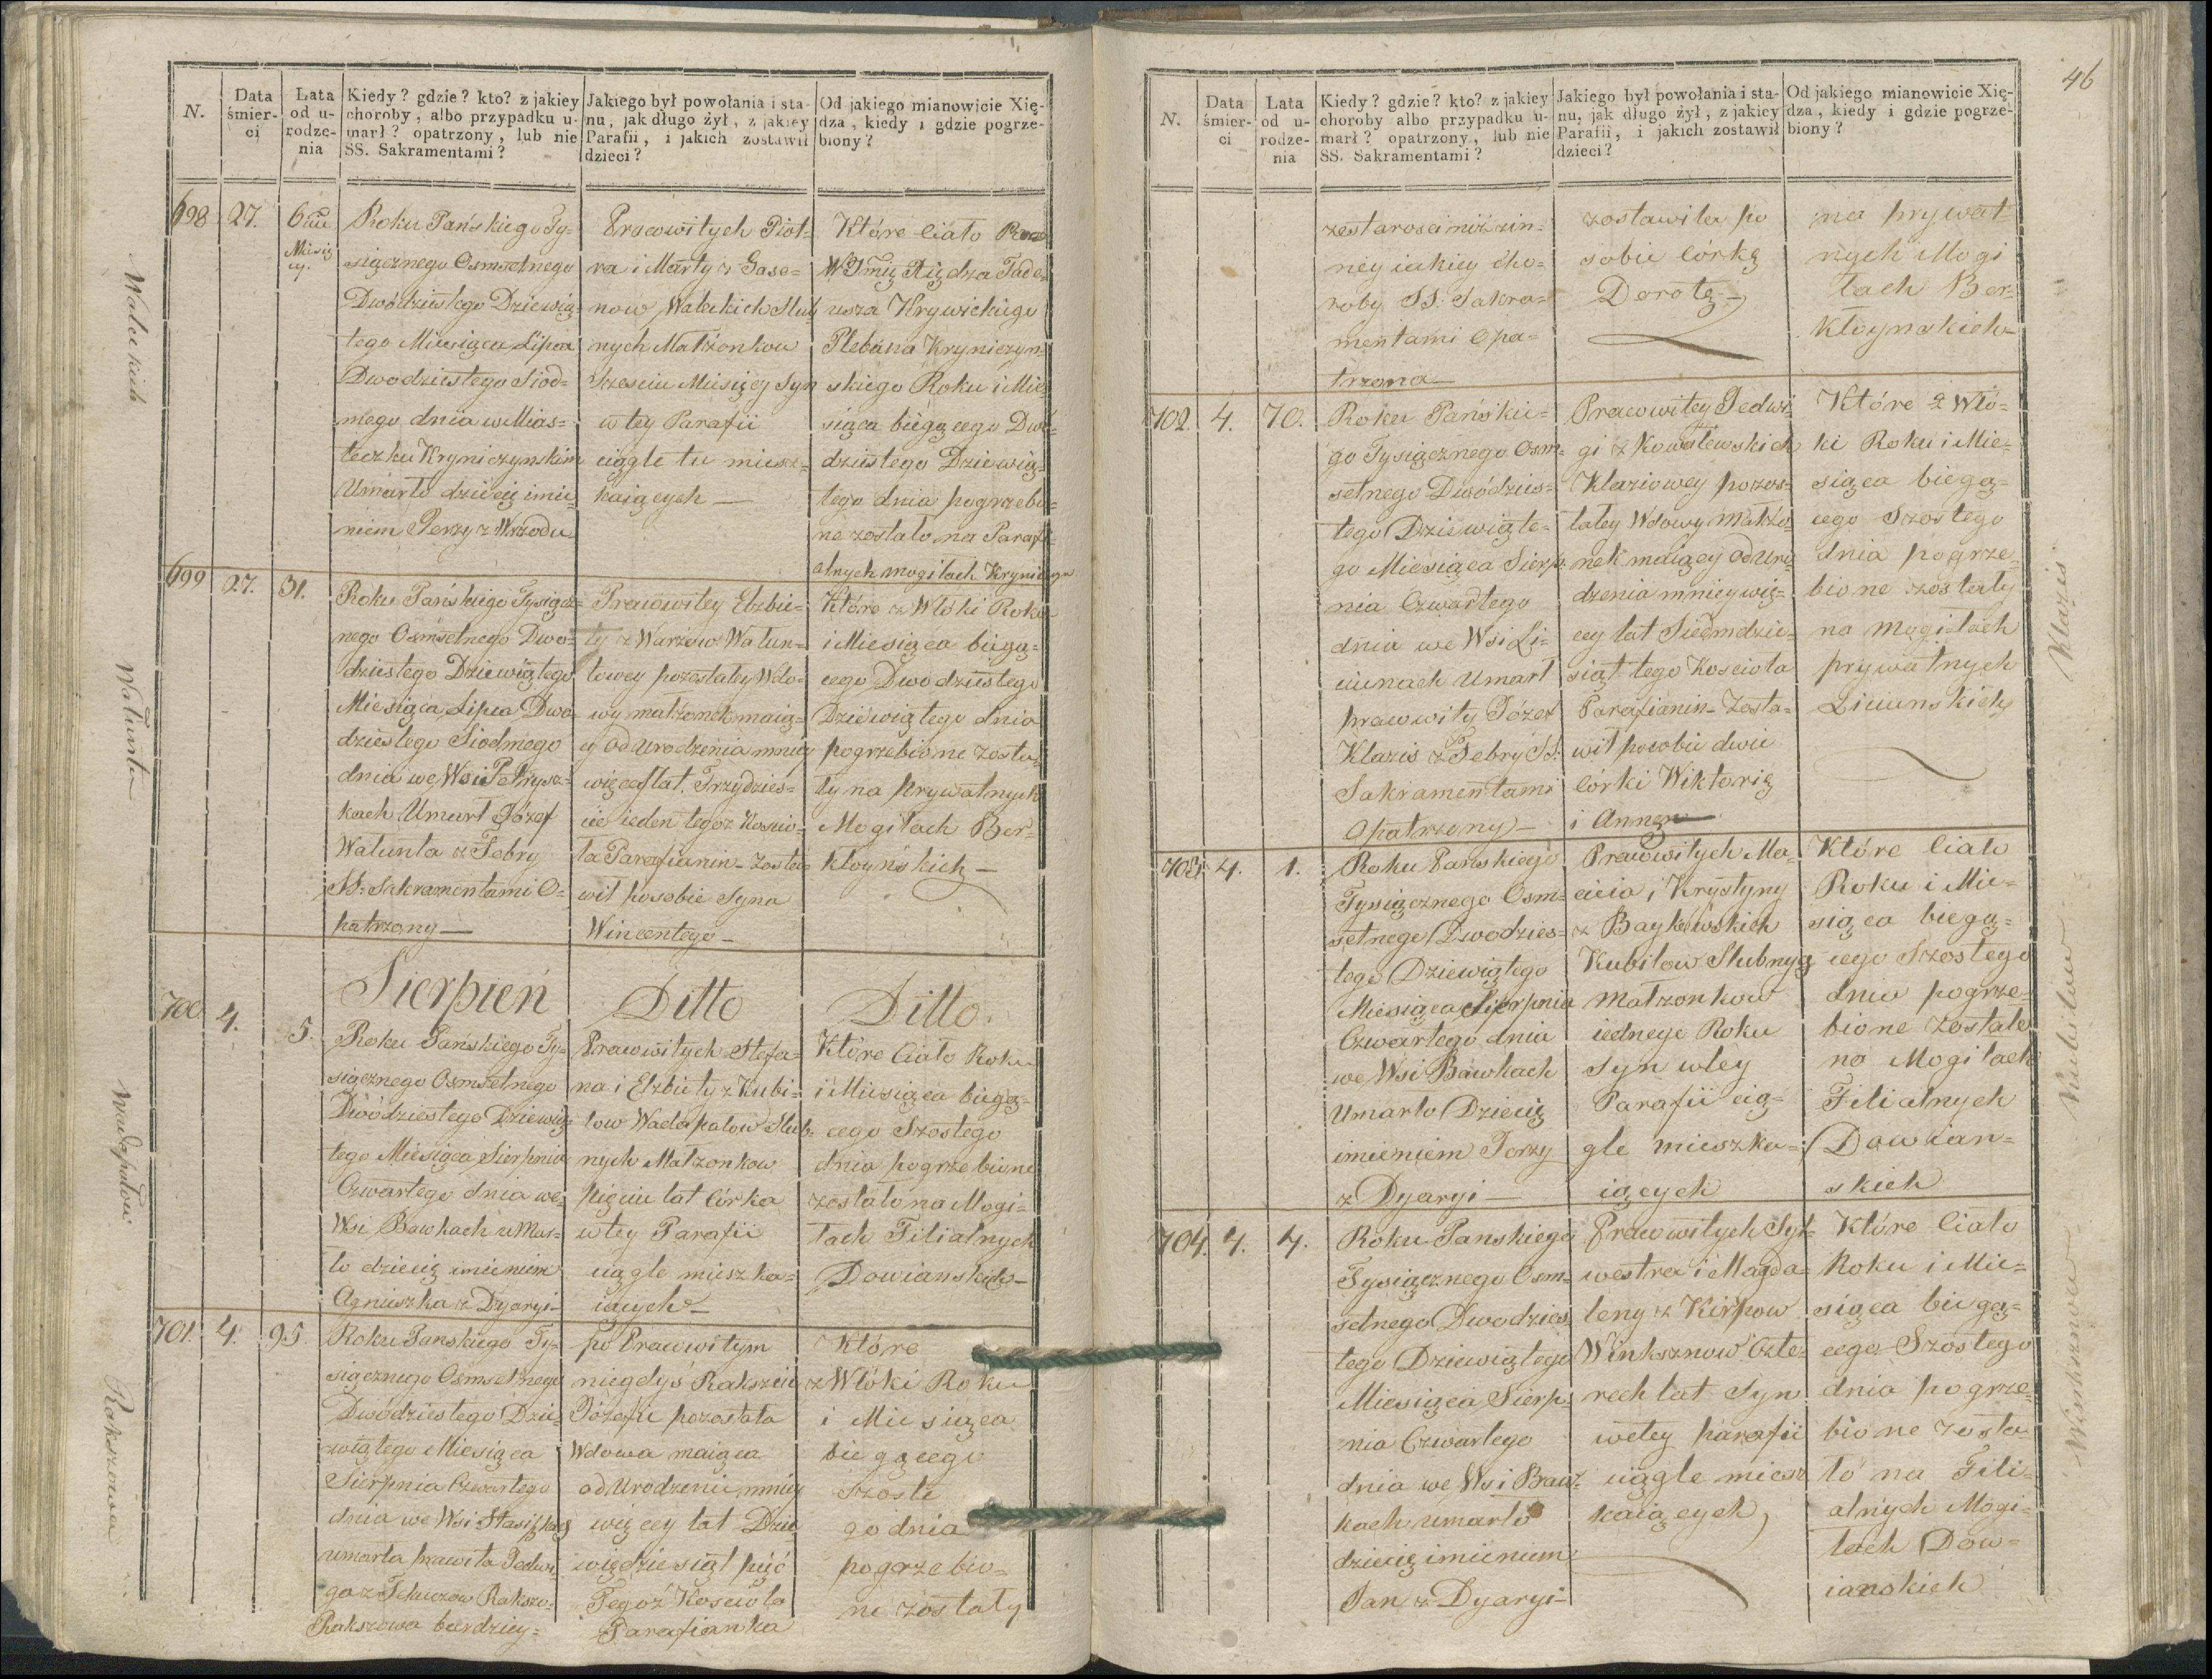 N.
Data śmier-
ci
Lata
od u-
rodze-
nia
Kiedy? gdzie? kto? z jakiey
choroby, albo przypadku u-
marł? opatrzony, lub nie
SS. Sakramentami?
Jakiego był powołania i sta-
nu, jak długo żył, z jakiey
Parafii, i jakich zostawił
dzieci?
Od jakiego mianowicie Xię-
dza, kiedy i gdzie pogrze-
biony?
Waleckich
698
27.
6ciu
Miesię
cy.
Roku Pańskiego Ty-
siącznego Osmsetnego
Dwódziestego Dziewią-
tego Miesiąca Lipca
Dwodziestego Siod-
mego dnia w Mias-
teczku Kryniczynskim
Umarło dziecię imie
niem Jerzy z Wrzodu
Pracowitych Piot-
ra i Marty z Gase-
now Waleckich Slub
nych Małżonkow
Szesciu Miesięcy Syn
w tey Parafii
ciągle tu miesz-
kaiących —
Które Ciało
W Jmię Xiędza Tade-
usza Krywickiego
Plebana Kryniczyn-
skiego Roku i Mie-
siąca biegącego Dwó-
dziestego Dziewią-
tego dnia pogrzebio-
ne zostało na Parafi-
alnych mogiłach
Walunta
699
27.
31.
Roku Pańskiego Tysiącz-
nego Osmsetnego Dwo-
dziestego Dziewiątego
Miesiąca Lipca Dwo-
dziestego Siodmego
dnia we Wsi Petrysz-
kach Umarł Józef
Walunta z Febry
SS: Sakramentami O-
patrzony —
Pracowitey Elzbie-
ty z Warzow Walun-
towey pozostałey Wdo-
wy małzonek maią-
cy od Urodzenia mniey
więcey lat Trzydzies-
cie ieden tegoz Koscio-
ła Parafianin - Zosta-
wił posobie Syna
Wincentego —
Które z Włoki Roku
i Miesiąca biegą-
cego Dwodziestego
Dziewiątego dnia
pogrzebione zosta-
ły na prywatnych
Mogiłach Ber-
kłoyńskich —
Sierpień
Ditto
Ditto.
700
4.
5.
Roku Pańskiego Ty-
siącznego Osmsetnego
Dwódziestego Dziewią-
tego Miesiąca Sierpnia
Czwartego dnia we
Wsi Bawkach umar-
ło dziecię imieniem
Agnieszka z Dyaryi —
Pracowitych Stefa-
na i Elzbiety z Kubi-
low Wadapalow Slub-
nych Małzonkow
pięciu lat Córka
w tey Parafii
ciągle mieszka-
iących —
Które Ciało Roku
i Miesiąca biegą-
cego Szostego
dnia pogrzebione
zostało na Mogi-
łach Filialnych
Dowianskich —
Wadapałow
701.
4.
95.
Roku Panskiego Ty-
siącznego Osmsetnego
Dwódziestego Dzie-
wiątego Miesiąca
Sierpnia Czwartego
dnia we Wsi
umarła
Rakszowa bardziey-
po Pracowitym
niegdyś Rakszcie
Józefie pozostała
Wdowa maiąca
od Urodzenia mniey
więcey lat Dzie-
więdziesiąt pięć
Tegoż Koscioła
Parafianka
Które
z Włóki Roku
i Miesiąca
biegącego
Szoste
go dnia
pogrzebio-
ne zostały
Rakszowa
46
N.
Data
śmier-
ci
Lata
od u-
rodze-
nia
Kiedy? gdzie? kto? z jakiey
choroby albo przypadku u-
marł? opatrzony, lub nie
SS. Sakramentami?
Jakiego był powołania i sta-
nu, jak długo żył, z jakiey
Parafii, i jakich zostawił
dzieci?
Od jakiego mianowicie Xię-
dza, kiedy i gdzie pogrze-
biony?
zestarosci niż zin-
ney iakiey cho-
roby SS. Sakra-
mentami Opa-
trzona —
zostawiła po
sobie Córkę
Dorotę —
na prywat-
nych Mogi
łach Ber-
kłoynskich —
702.
4.
70.
Roku Pańskie-
go Tysiącznego Osm-
setnego Dwódzies-
tego Dziewiąte-
go Miesiąca Sierp-
nia Czwartego
dnia we Wsi Li-
ciunach Umarł
pracowity Józef
Klazis z Febry SS.
Sakramentami
Opatrzony —
Pracowitey Jedwi-
gi z Kowalewskich
Klaziowey pozos-
tałey Wdowy Małżo-
nek maiący od Uro
dzenia mniey wię-
cey lat Siedmdzie-
siąt tego Koscioła
Parafianin - Zosta-
wił posobie dwie
Córki Wiktorię
i Annę —
Które z Wló-
ki Roku i Mie-
siąca biegą-
cego Szostego
dnia pogrze-
bione zostały
na Mogiłach
prywatnych
Liciunskich
Klazis
703.
4.
1.
Roku Pańskiego
Tysiącznego Osm-
setnego Dwodzies-
tego Dziewiątego
Miesiąca Sierpnia
Czwartego dnia
we Wsi Bawkach
Umarło Dziecię
imieniem Jerzy
z Dyaryi —
Pracowitych Ma-
cieia i Krystyny
z Baykowskich
Kubilow Slubnych
Małzonkow
iednego Roku
Syn wtey
Parafii cią-
gle mieszka-
iących
Które Ciało
Roku i Mie-
siąca biegą-
cego Szostego
dnia pogrze-
bione Zostało
na Mogiłach
Filialnych
Dowian-
skich
Kubilow
704.
4.
4.
Roku Panskiego
Tysiącznego Osm-
setnego Dwodzies
tego Dziewiątego
Miesiąca Sierp-
nia Czwartego
dnia we Wsi Baw-
kach umarło
dziecię imieniem
Jan z Dyaryi —
Pracowitych Syl-
westra i Magda-
leny z Kirpow
Winksznow Czte-
rech lat Syn
wetey parafii
ciągle miesz
kaiących,
Które Ciało
Roku i Mie-
siąca biegą-
cego Szostego
dnia pogrze-
bione zosta-
ło na Fili-
alnych Mogi-
łach Dow-
ianskich
Winksznow